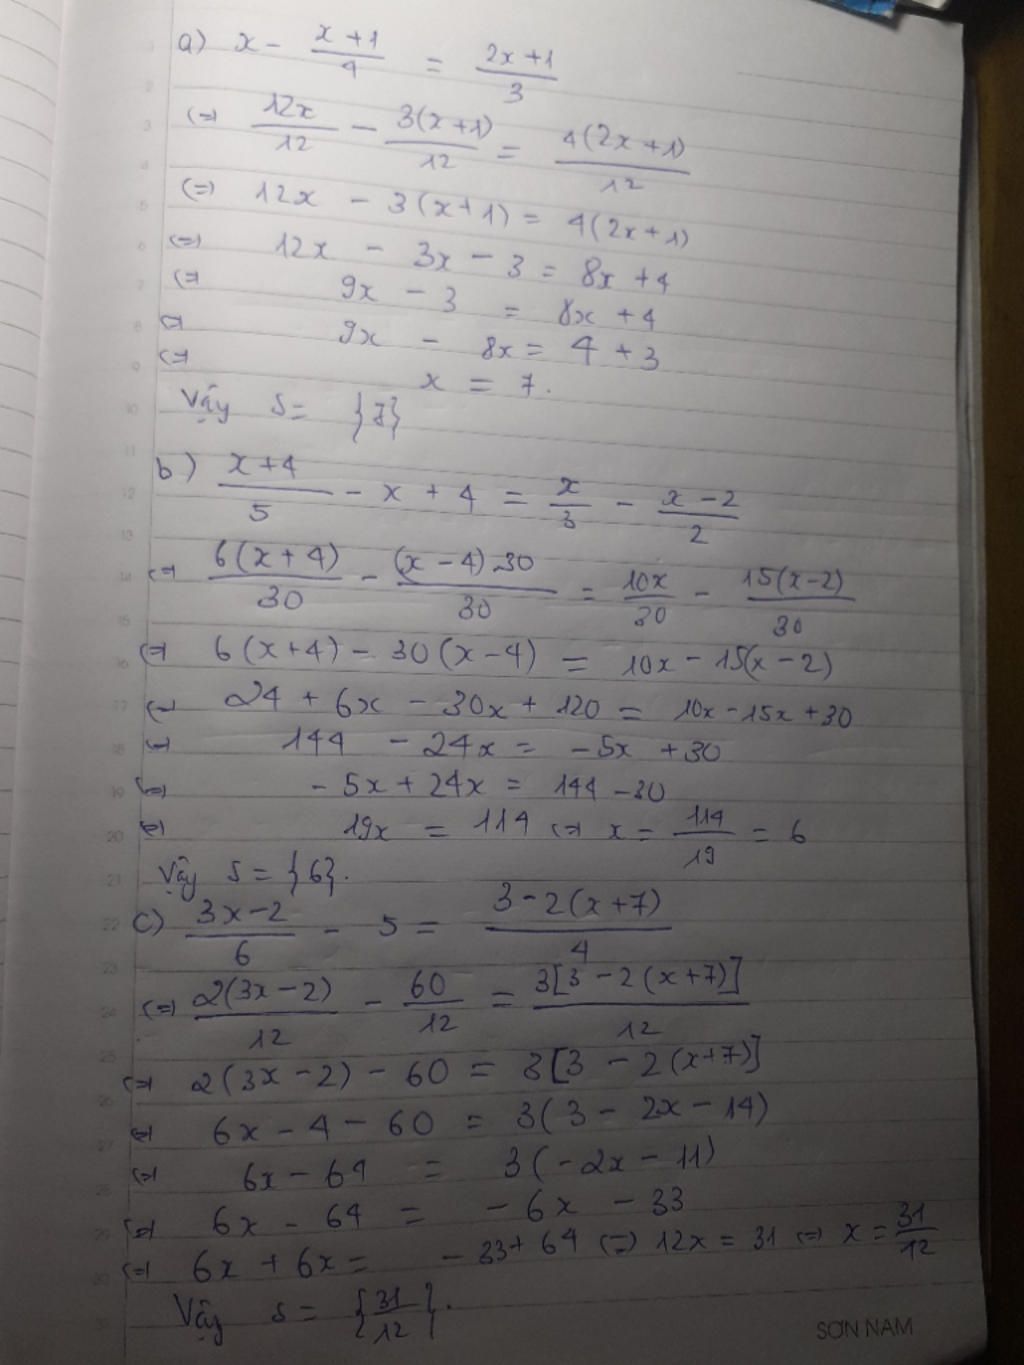 a) x - (x+1)/4 = (2x+1)/3
(=) 12x/12 - 3(x+1)/12 = 4(2x+1)/12
(=) 12x - 3(x+1) = 4(2x+1)
(=) 12x - 3x - 3 = 8x + 4
(=) 9x - 3 = 8x + 4
(=) 9x - 8x = 4 + 3
(=) x = 7.
Vậy S = {7}
b) (x+4)/5 - x + 4 = x/3 - (x-2)/2
(=) 6(x+4)/30 - (x-4)30/30 = 10x/30 - 15(x-2)/30
(=) 6(x+4) - 30(x-4) = 10x - 15(x-2)
(=) 24 + 6x - 30x + 120 = 10x - 15x + 30
(=) 144 - 24x = -5x + 30
(=) -5x + 24x = 144 - 30
(=) 19x = 114 (=) x = 114/19 = 6
Vậy S = {6}.
c) (3x-2)/6 - 5 = (3-2(x+7))/4
(=) 2(3x-2)/12 - 60/12 = 3[3-2(x+7)]/12
(=) 2(3x-2) - 60 = 3[3 - 2(x+7)]
(=) 6x - 4 - 60 = 3(3 - 2x - 14)
(=) 6x - 64 = 3(-2x - 11)
(=) 6x - 64 = -6x - 33
(=) 6x + 6x = -33 + 64 (=) 12x = 31 (=) x = 31/12
Vậy S = {31/12}.
SƠN NAM